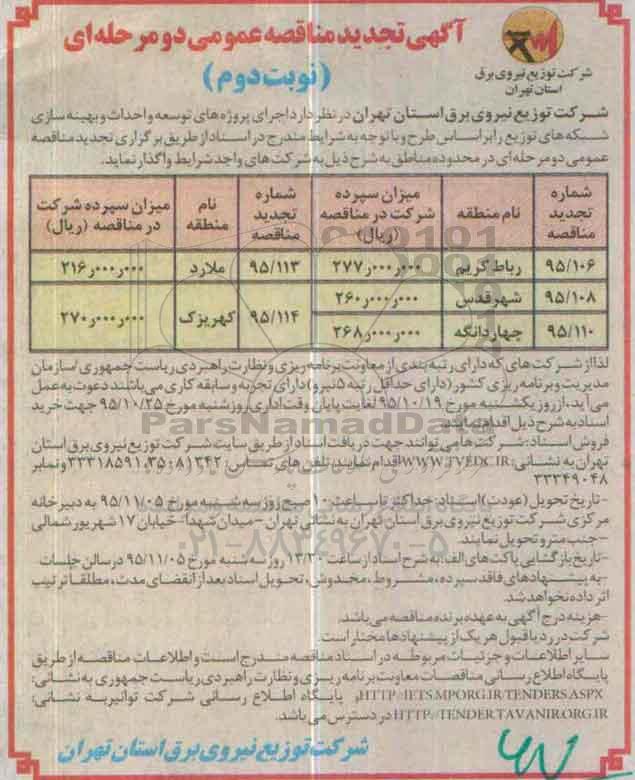 آگهی تجدید مناقصه عمومی دو مرحله ای
(نوبت دوم)
شرکت توزیع نیروی برق
استان تهران
شرکت توزیع نیروی برق استان تهران در نظر دارد اجرای پروژه های توسعه و احداث و بهینه سازی
شبکه های توزیع را براساس طرح و با توجه به شرایط مندرج در اسناد از طریق برگزاری تجدید مناقصه
عمومی دو مرحله ای در محدوده مناطق به شرح ذیل به شرکت های واجد شرایط واگذار نماید.
شماره تجدید مناقصه | نام منطقه | میزان سپرده شرکت در مناقصه (ریال) | شماره تجدید مناقصه | نام منطقه | میزان سپرده شرکت در مناقصه (ریال)
۹۵/۱۰۶ | رباط کریم | ۲۷۷٫۰۰۰٫۰۰۰ | ۹۵/۱۱۳ | ملارد | ۲۱۶٫۰۰۰٫۰۰۰
۹۵/۱۰۸ | شهرقدس | ۲۶۰٫۰۰۰٫۰۰۰ | ۹۵/۱۱۴ | کهریزک | ۲۷۰٫۰۰۰٫۰۰۰
۹۵/۱۱۰ | چهاردانگه | ۲۶۸٫۰۰۰٫۰۰۰
لذا از شرکت های که دارای رتبه بندی از معاونت برنامه ریزی و نظارت راهبردی ریاست جمهوری /سازمان
مدیریت و برنامه ریزی کشور (دارای حداقل رتبه ۵ نیرو) دارای تجربه و سابقه کاری می باشند دعوت به عمل
می آید، از روز یکشنبه مورخ ۹۵/۱۰/۱۹ لغایت پایان وقت اداری روز شنبه مورخ ۹۵/۱۰/۲۵ جهت خرید
اسناد به شرح ذیل اقدام نمایند.
فروش اسناد: شرکت ها می توانند جهت دریافت اسناد از طریق سایت شرکت توزیع نیروی برق استان
تهران به نشانی: WWW.TVEDC.IR اقدام نمایند، تلفن های تماس: ۸۱۳۴۲، ۳۵ و ۳۳۳۱۸۵۹۱ و نمابر
۳۳۳۴۹۰۴۸
-تاریخ تحویل (عودت) اسناد: حداکثر تا ساعت ۱۰ صبح روز سه شنبه مورخ ۹۵/۱۱/۰۵ به دبیرخانه
مرکزی شرکت توزیع نیروی برق استان تهران به نشانی تهران - میدان شهدا- خیابان ۱۷ شهریور شمالی
- جنب مترو تحویل نمایند.
-تاریخ بازگشایی پاکت های الف: به شرح اسناد از ساعت ۱۳/۳۰ روز سه شنبه مورخ ۹۵/۱۱/۰۵ در سالن جلسات
-به پیشنهادهای فاقد سپرده، مشروط، مخدوش، تحویل اسناد بعد از انقضای مدت، مطلقا ترتیب
اثر داده نخواهد شد.
-هزینه درج آگهی به عهده برنده مناقصه می باشد.
شرکت در رد یا قبول هر یک از پیشنهادها مختار است.
سایر اطلاعات و جزئیات مربوطه در اسناد مناقصه مندرج است و اطلاعات مناقصه از طریق
پایگاه اطلاع رسانی مناقصات معاونت برنامه ریزی و نظارت راهبردی ریاست جمهوری به نشانی:
HTTP://IETS.MPORG.IR/TENDERS.ASPX و پایگاه اطلاع رسانی شرکت توانیر به نشانی:
HTTP://TENDER.TAVANIR.ORG.IR در دسترس می باشد.
شرکت توزیع نیروی برق استان تهران
ParsNamadData
۰۲۱-۸۸۳۴۹۶۷۰-۵